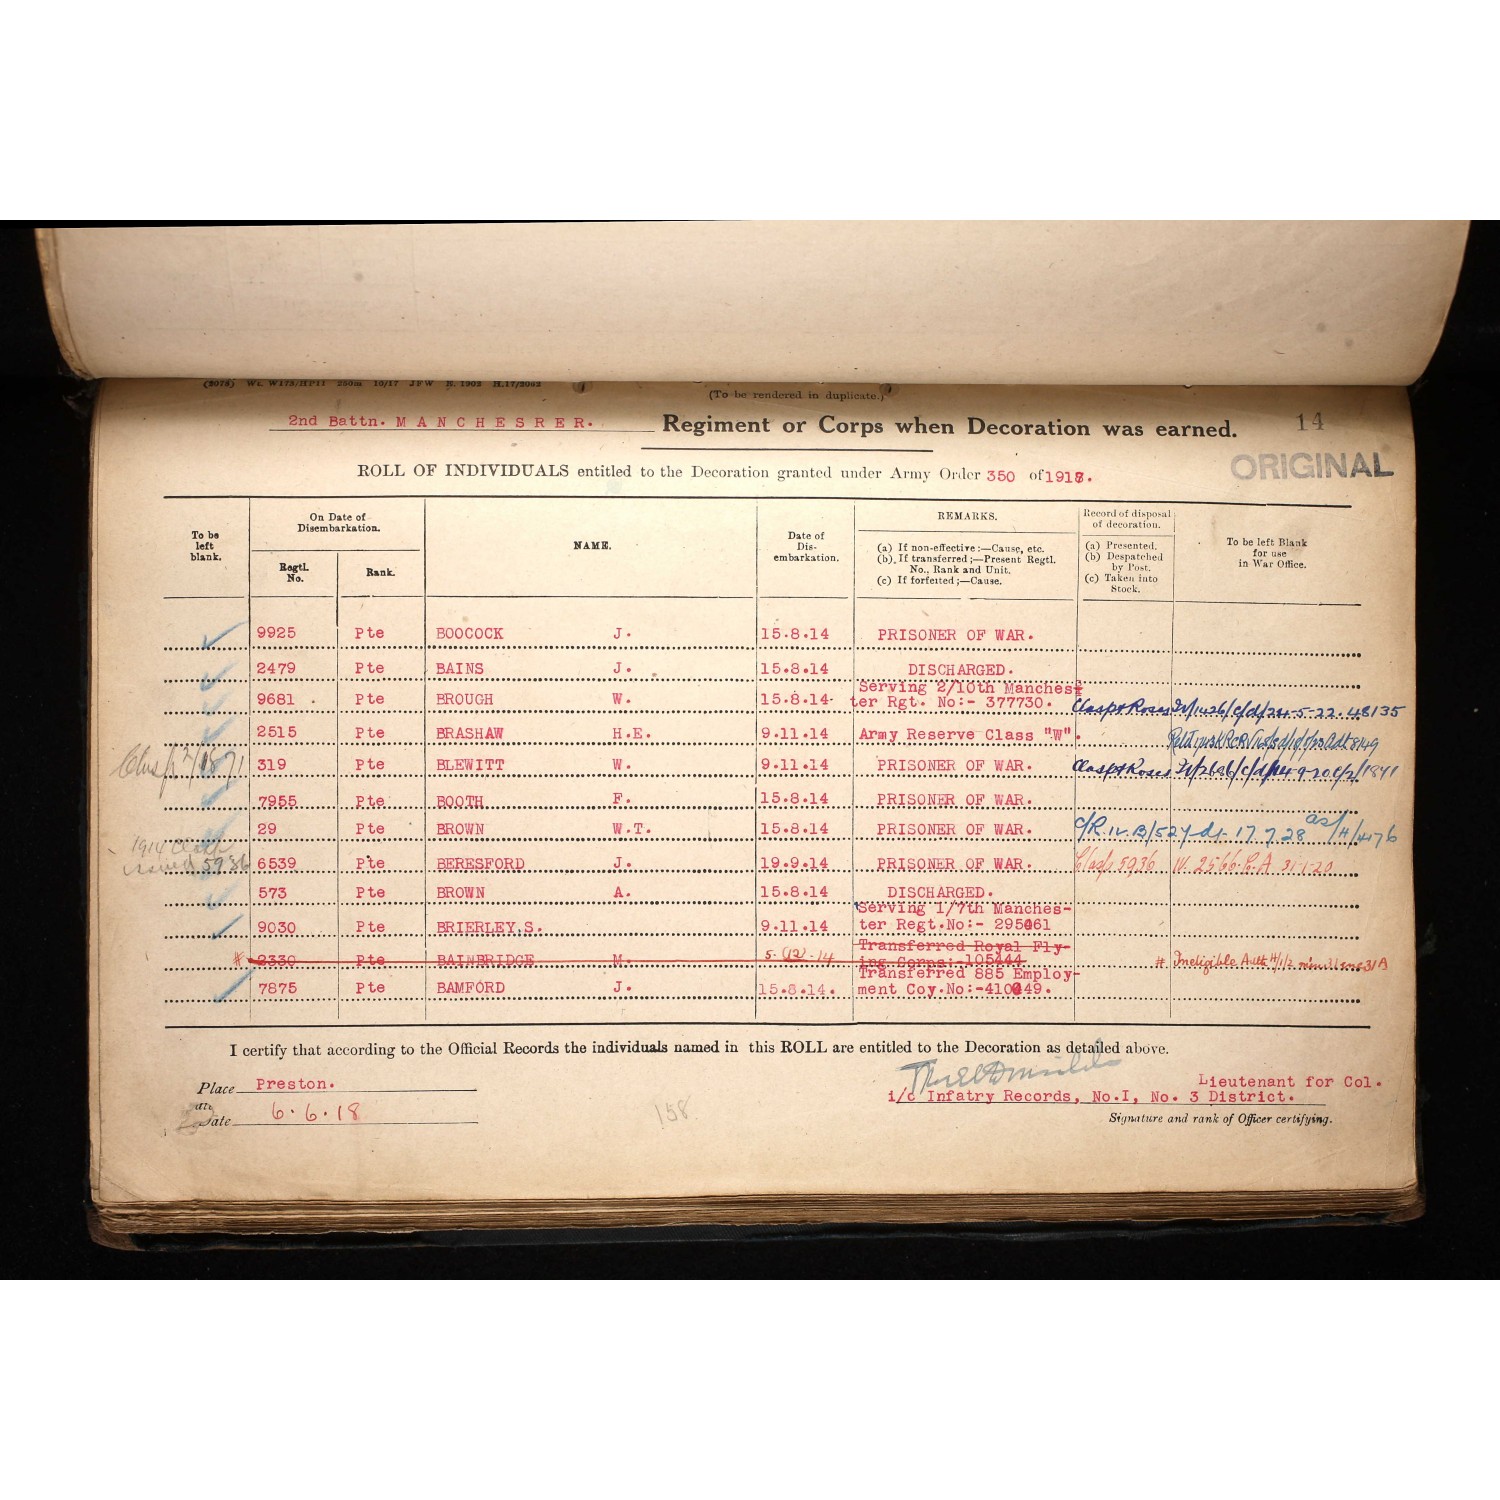 (2078) Wt. W175/HP11 250m 10/17 JFW E. 1903 H.17/2062
(To be rendered in duplicate.)
2nd Battn. M A N C H E S R E R. Regiment or Corps when Decoration was earned. 14
ORIGINAL
ROLL OF INDIVIDUALS entitled to the Decoration granted under Army Order 350 of 1917.
To be left blank. On Date of Disembarkation. Regtl. No. Rank. NAME. Date of Disembarkation. REMARKS. Record of disposal of decoration. To be left Blank for use in War Office.
(a) If non-effective:—Cause, etc.
(b) If transferred;—Present Regtl. No., Rank and Unit.
(c) If forfeited;—Cause.
(a) Presented.
(b) Despatched by Post.
(c) Taken into Stock.
9925 Pte BOOCOCK J. 15.8.14 PRISONER OF WAR.
2479 Pte BAINS J. 15.8.14 DISCHARGED.
9681 Pte BROUGH W. 15.8.14 Serving 2/10th Manches-
ter Rgt. No:- 377730. Clasp & Roses 24-5-22. 48135
2515 Pte BRASHAW H.E. 9.11.14 Army Reserve Class "W".
319 Pte BLEWITT W. 9.11.14 PRISONER OF WAR. Clasp & Roses
7955 Pte BOOTH F. 15.8.14 PRISONER OF WAR.
29 Pte BROWN W.T. 15.8.14 PRISONER OF WAR. 17.7.28
1914 Clasp
issued 5936 6539 Pte BERESFORD J. 19.9.14 PRISONER OF WAR. Clasp 5936 31-1-20
573 Pte BROWN A. 15.8.14 DISCHARGED.
9030 Pte BRIERLEY,S. 9.11.14 Serving 1/7th Manches-
ter Regt.No:- 295061
# 2330 Pte BAINBRIDGE M. 5-(12)-14 Transferred Royal Fly-
ing Corps:-105444. # Ineligible
7875 Pte BAMFORD J. 15.8.14. Transferred 885 Employ-
ment Coy.No:-410049.
I certify that according to the Official Records the individuals named in this ROLL are entitled to the Decoration as detailed above.
Place Preston.
Lieutenant for Col.
i/c Infatry Records, No.I, No. 3 District.
Date 6.6.18
158.
Signature and rank of Officer certifying.